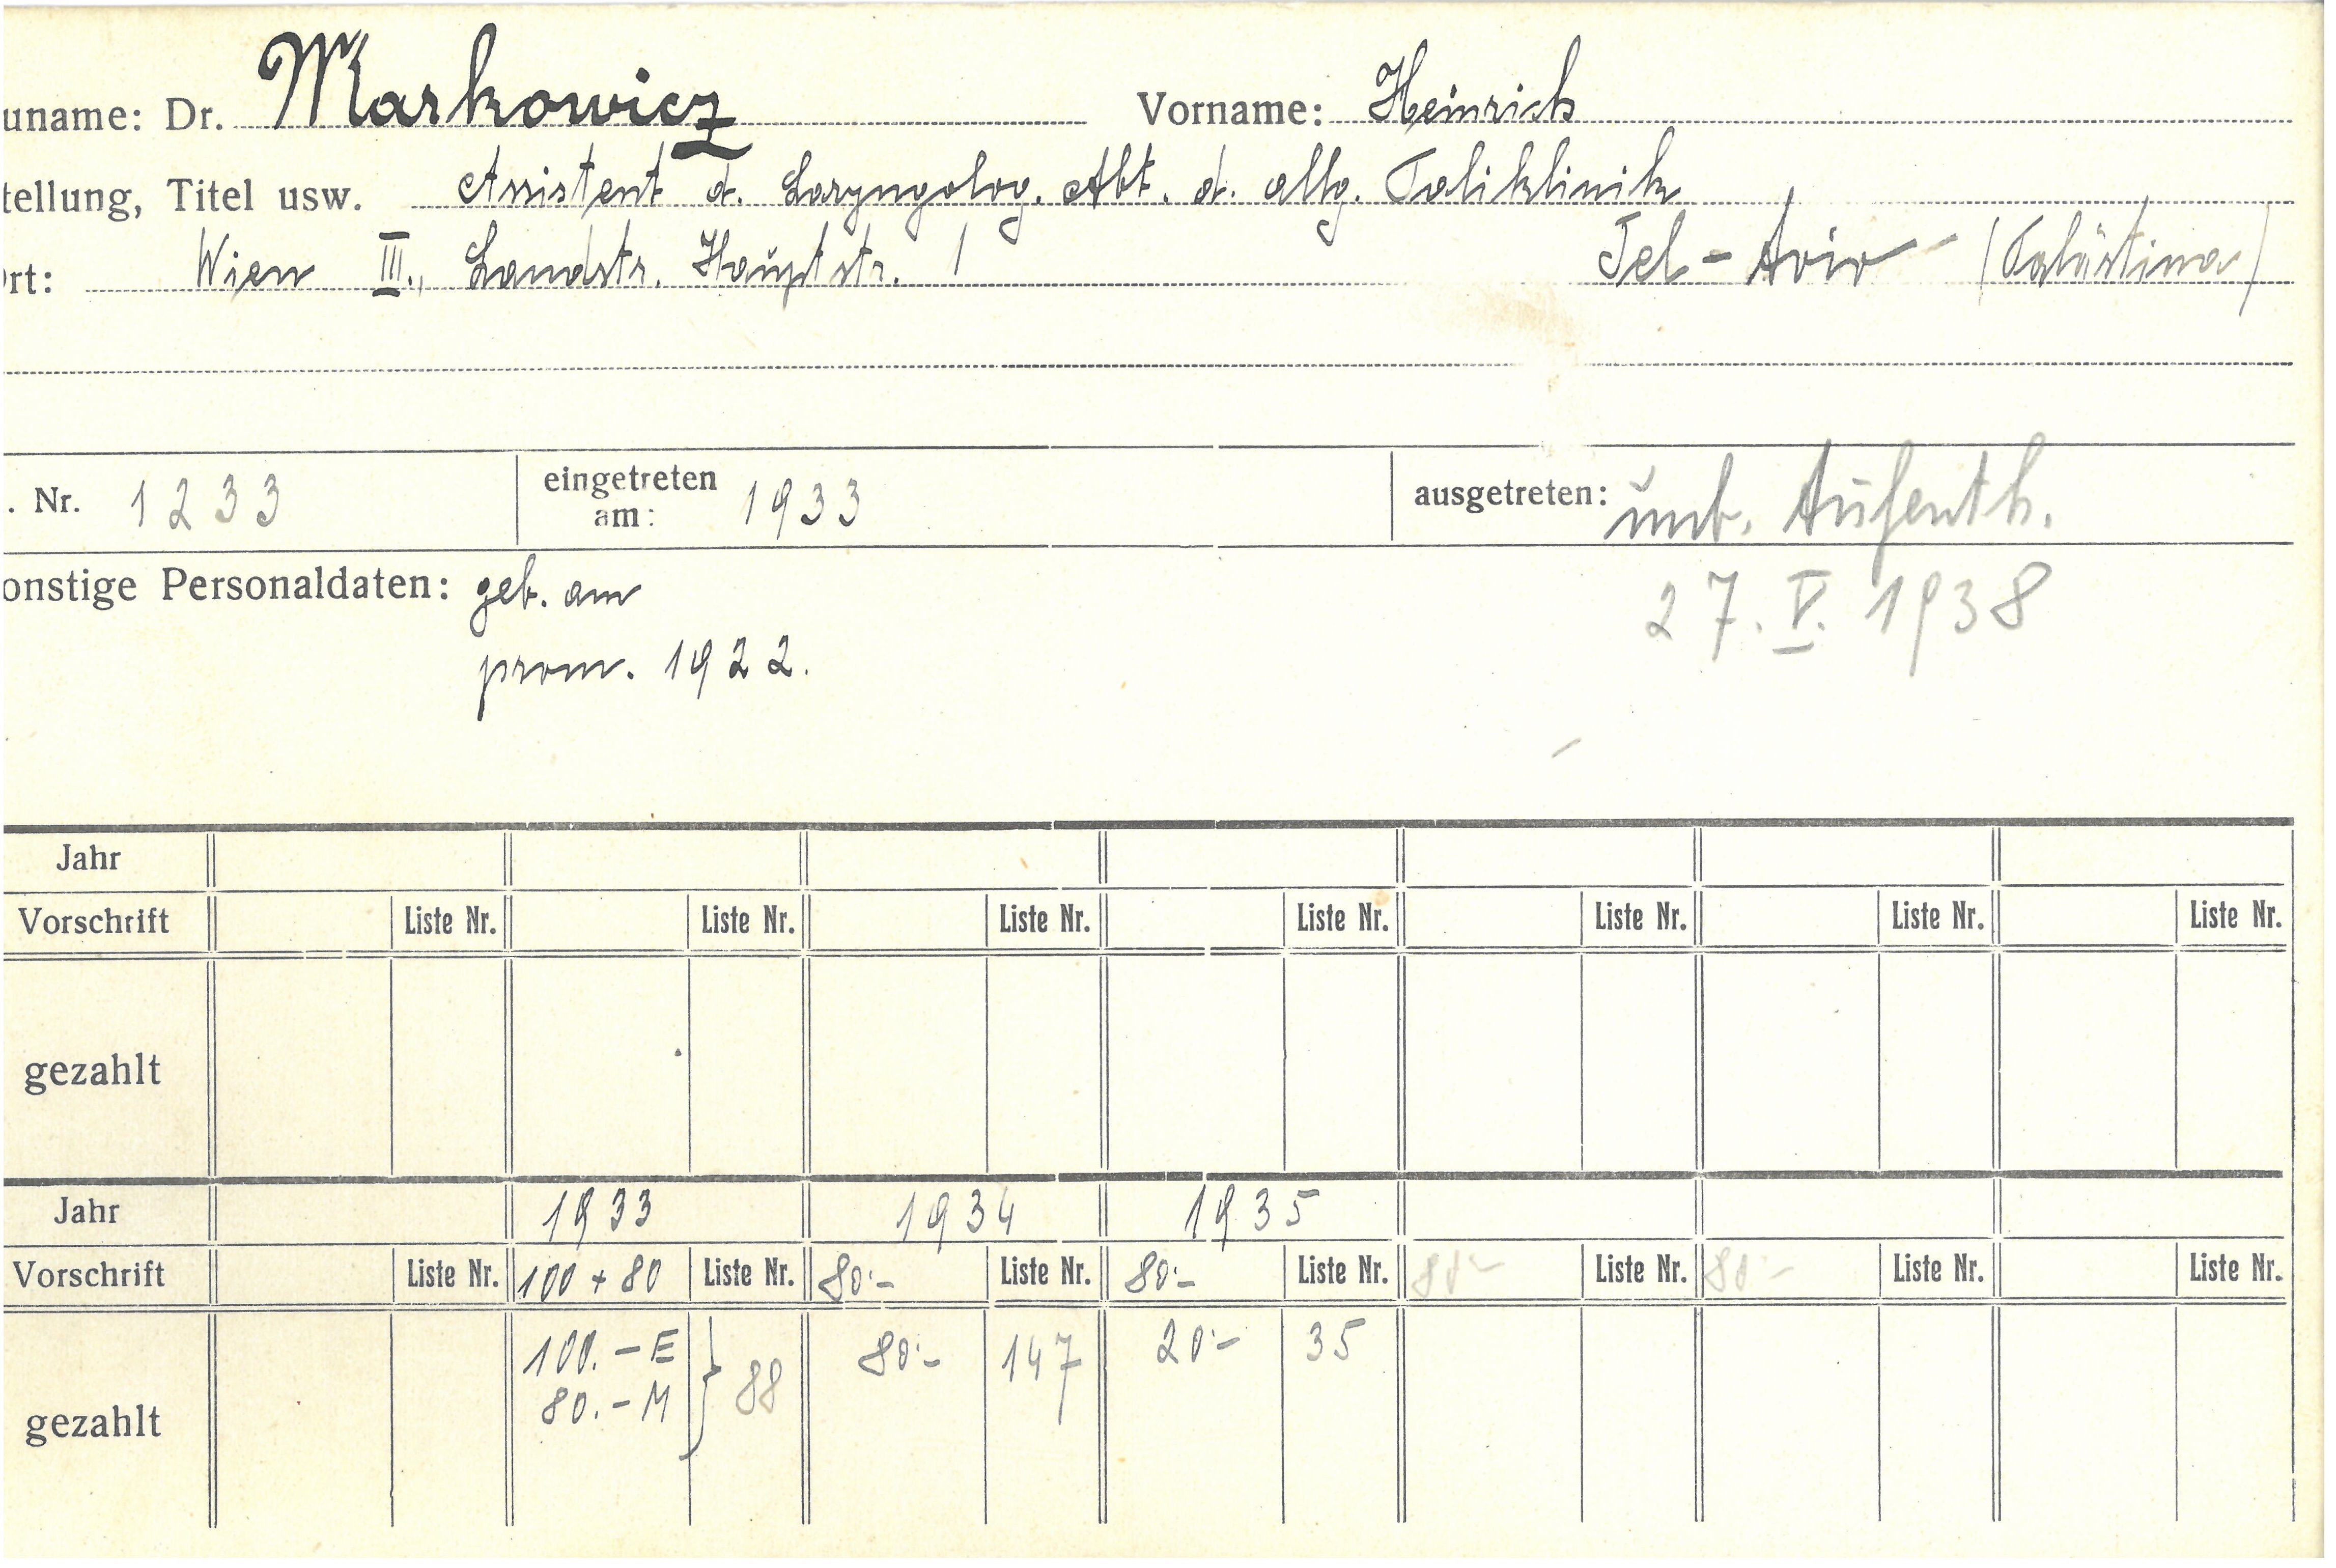 uname: Dr. Markowicz Vorname: Heinrich
tellung, Titel usw. Assistent d. Laryngolog. Abt. d. allg. Poliklinik
rt: Wien III., Landstr. Hauptstr. 1 Tel-Aviv (Palästina)
. Nr. 1233 eingetreten am: 1933 ausgetreten: unb. Aufenth.
27. V. 1938
onstige Personaldaten: geb. am
prom. 1922.
Jahr
Vorschrift Liste Nr. Liste Nr. Liste Nr. Liste Nr. Liste Nr. Liste Nr. Liste Nr.
gezahlt
Jahr 1933 1934 1935
Vorschrift Liste Nr. 100 + 80 Liste Nr. 80.- Liste Nr. 80.- Liste Nr. 80.- Liste Nr. 80.- Liste Nr. Liste Nr.
100.- E 80.- 147 20.- 35
80.- M } 88
gezahlt